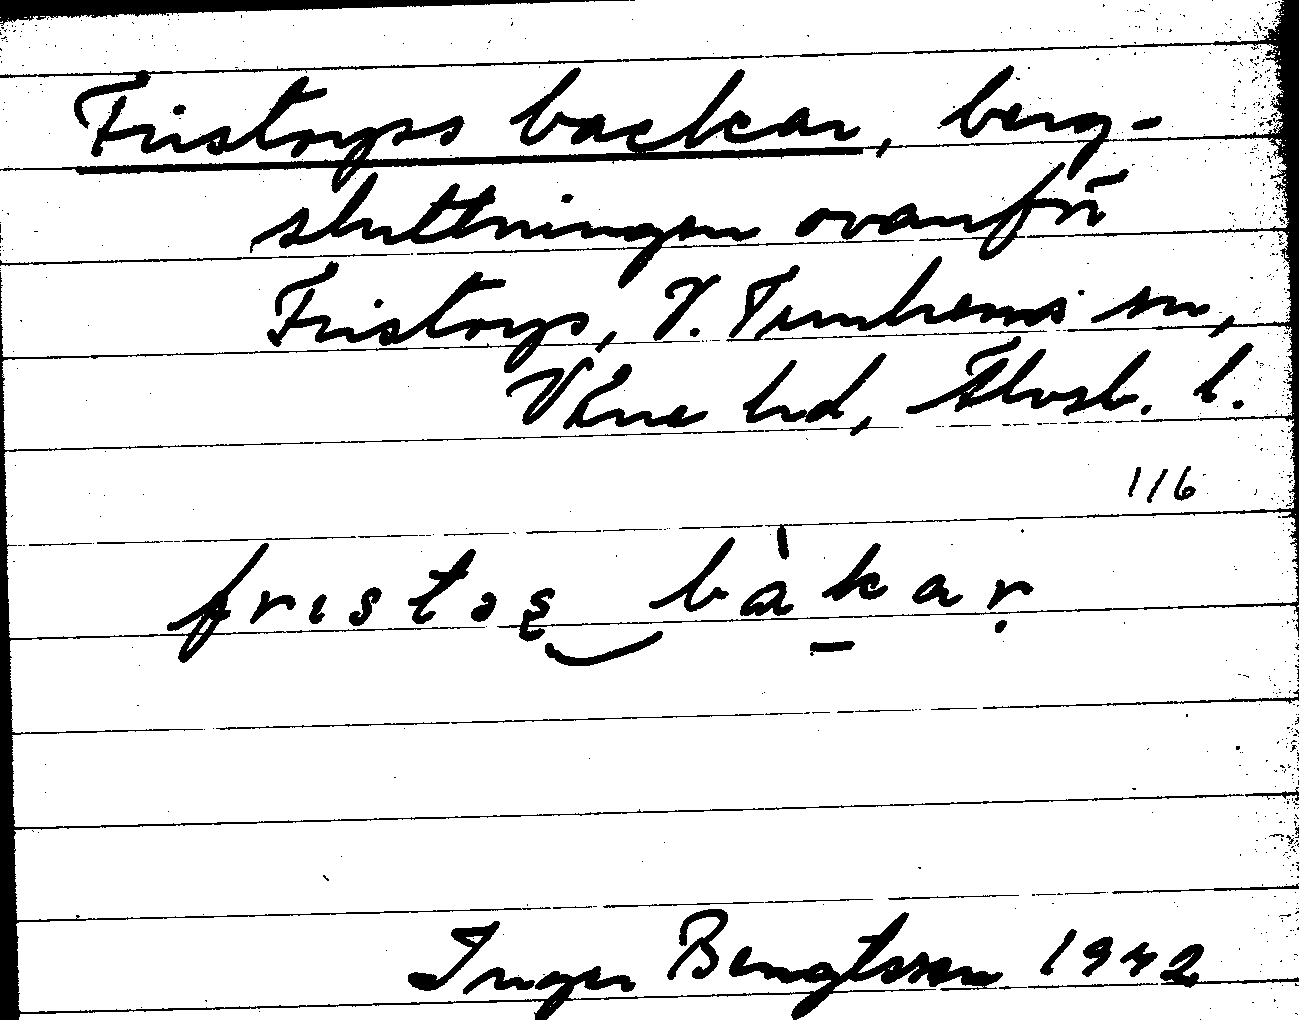 Fristorps backar, berg-
sluttningen ovanför
Fristorp, V. Tunhems sn,
Väne hd, Älvsb. l.
116
fristɔs bàkar
Inger Bengtsson 1942